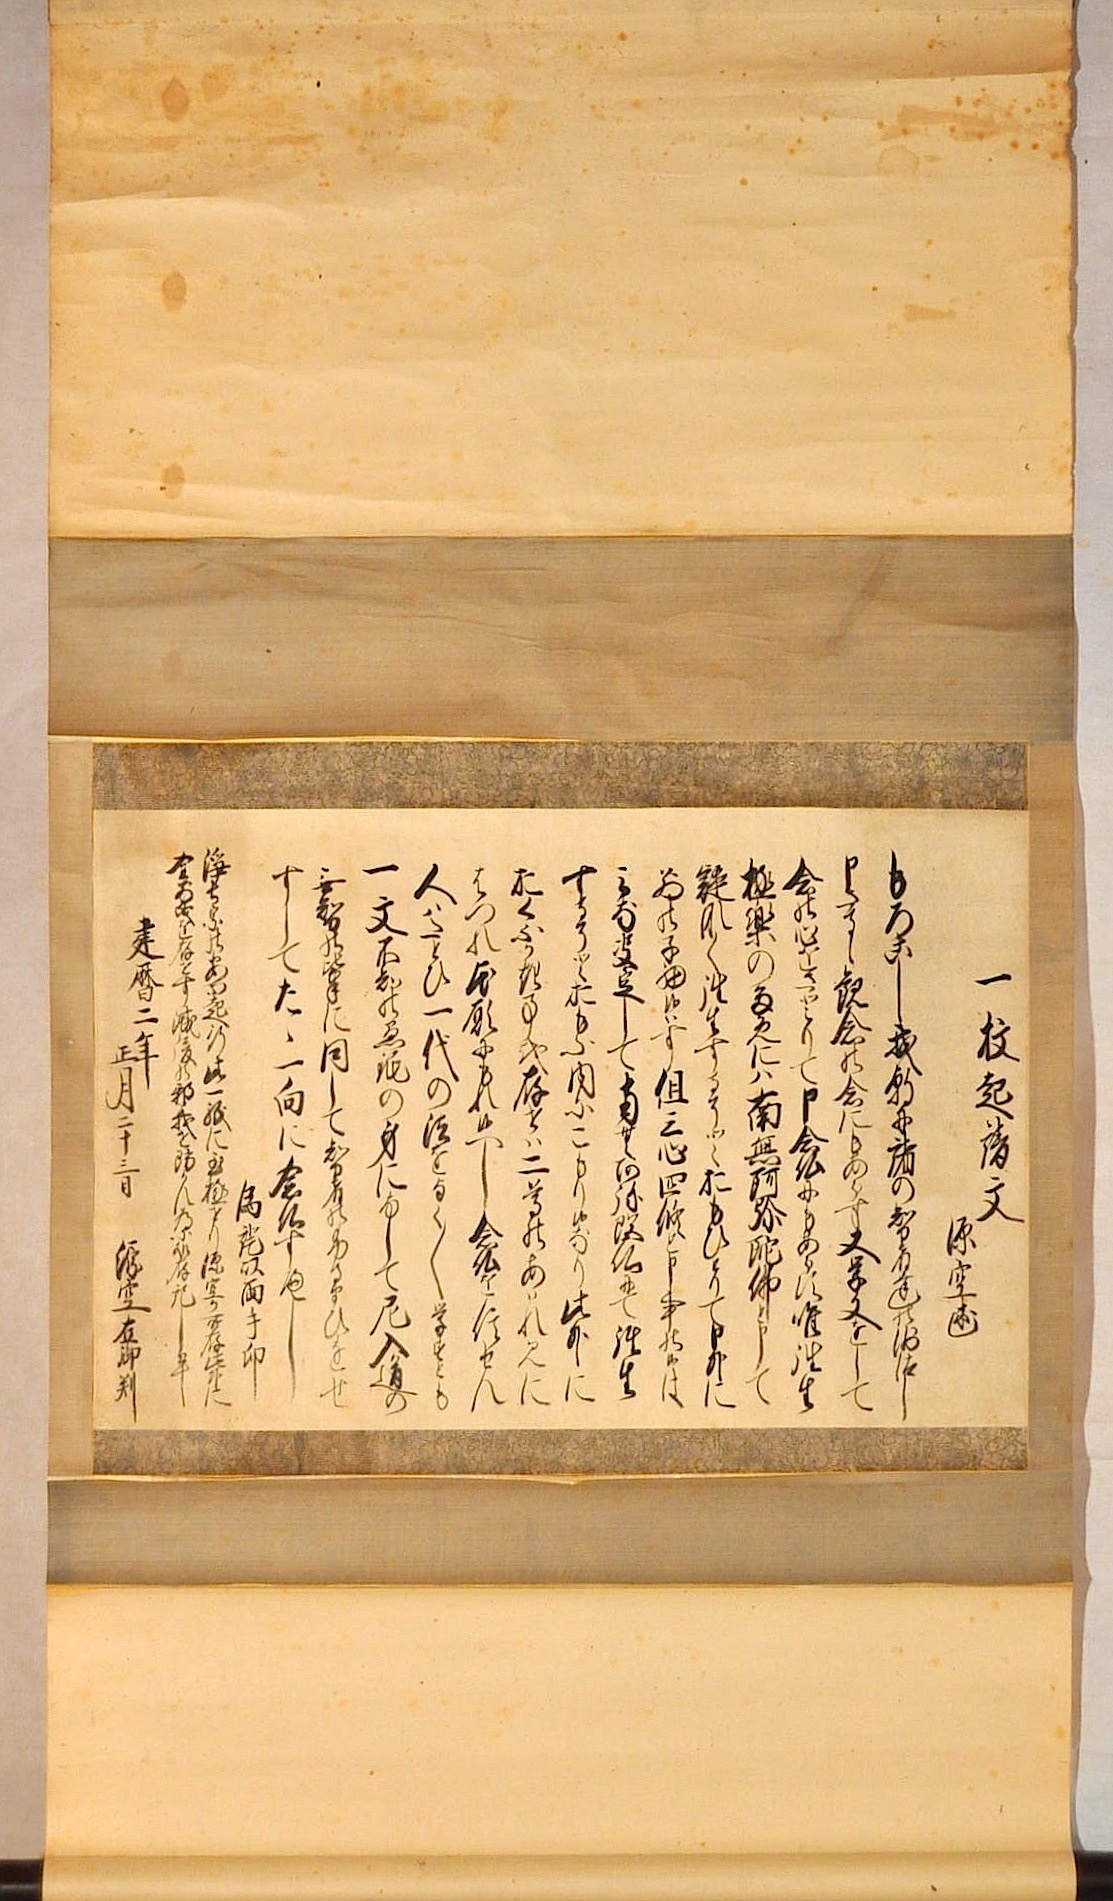 一枚起請文
源空述
もろこし我朝に諸の智者達の沙汰し
申さるゝ観念の念にもあらす又学文をして
念の心をさとりて申念仏にもあらす唯往生
極楽のためにハ南無阿弥陀仏と申して
疑なく往生するそとおもひとりて申外に
別の子細候はす但三心四修と申事の候は
皆決定して南無阿弥陀仏にて往生
するそとおもふ内にこもり候なり此外に
おくふかき事を存せハ二尊のあはれみに
はつれ本願にもれ候へし念仏を信せん
人ハたとひ一代の法をよく〱学すとも
一文不知の愚鈍の身になして尼入道の
無智の輩に同して智者のふるまひをせ
すしてたゝ一向に念仏すへし
為証以両手印
浄土宗の安心起行此一紙に至極せり源空か所存此外に
全別義を存せす滅後の邪義を防かん為に所存記し畢
建暦二年
正月二十三日
源空在御判